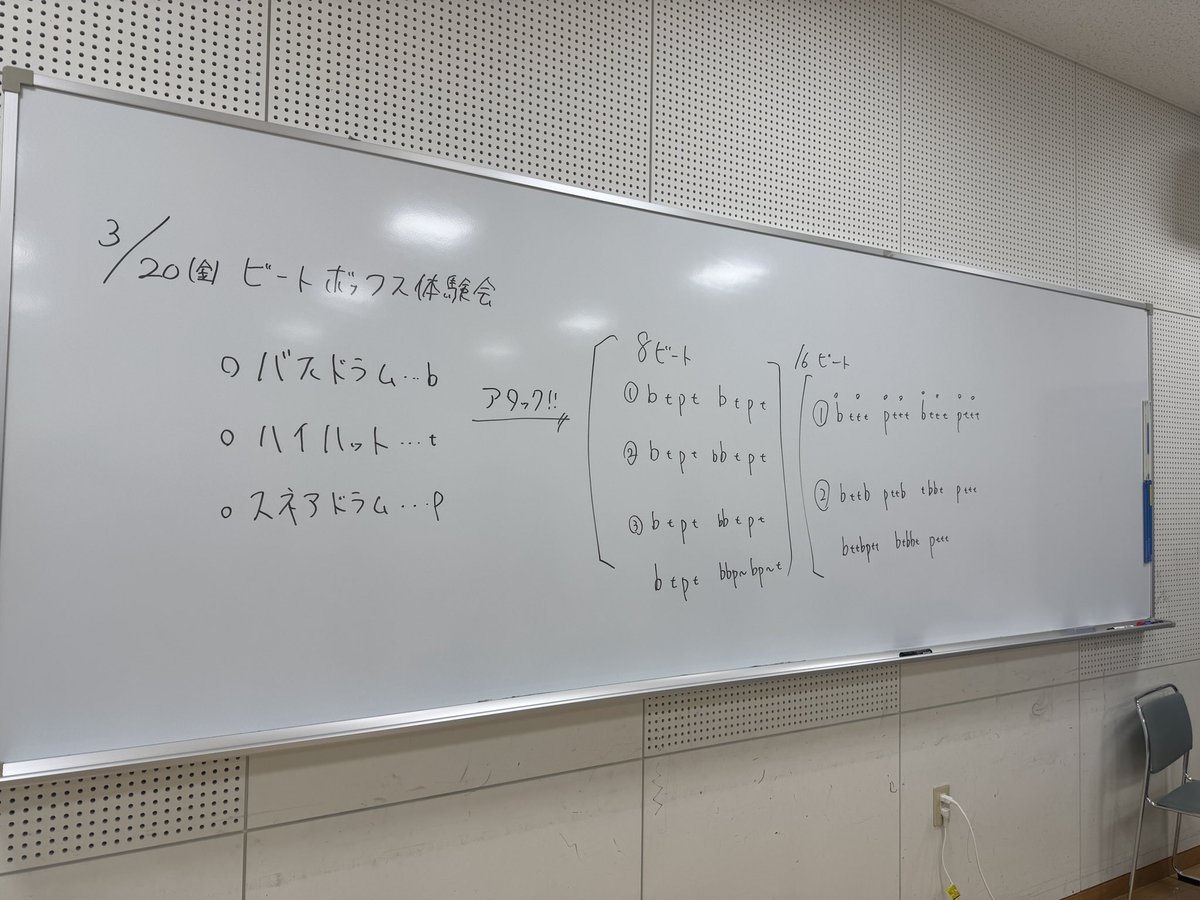 3/20(金) ビートボックス体験会
○ バスドラム…b
○ ハイハット…t
○ スネアドラム…p
アタック!!
8ビート
① b t p t b t p t
② b t p t bb t p t
③ b t p t bb t p t
b t p t bbp~bp~t
16ビート
① bttt pttt bttt pttt
② bttb pttb tbbt pttt
bttbptt btbbt pttt